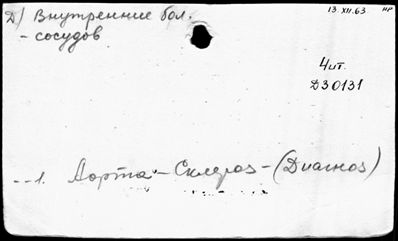 Д) Внутренние бол.
- сосудов
13.XII.63 НР
Чит.
Д30131
--1. Аорта - Склероз - (Диагноз)